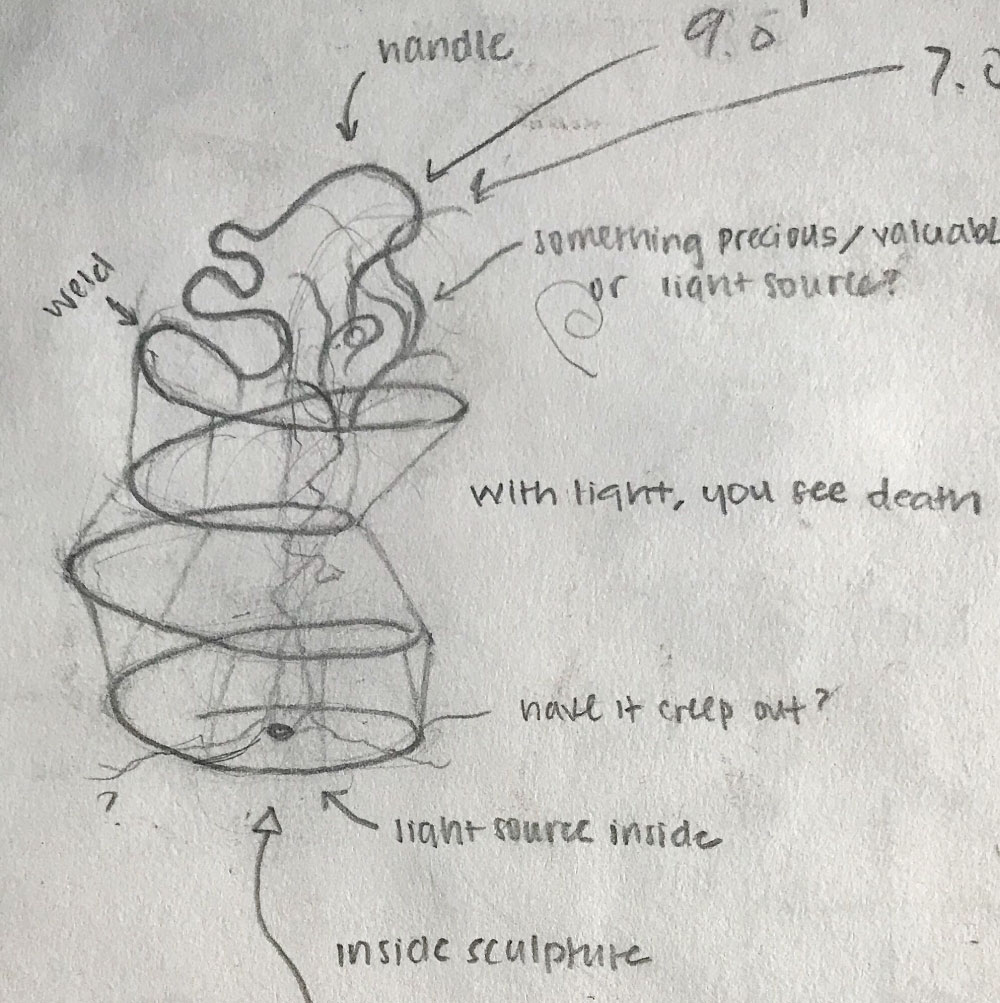 handle
9.0'
7.0
weld
something precious/valuabl
or light source?
with light, you see death
have it creep out?
?
light source inside
inside sculpture